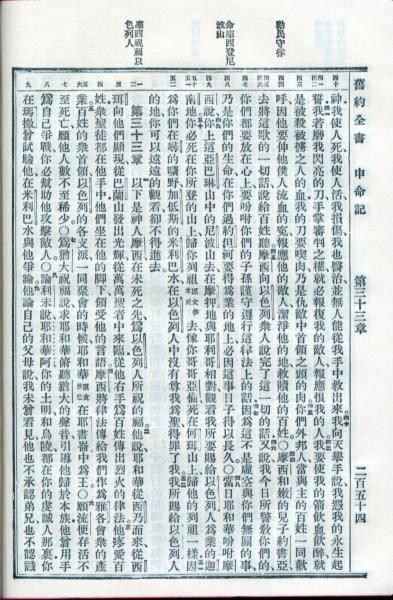 舊約全書 申命記 第三十三章 二百五十四
勸民守律
神我使人死我使人活我損傷我也醫治並無人能從我手中救出來我向天舉手說我憑我的永生起
誓我若磨我閃亮的刀手掌審判之權就必報復我的敵人報應恨我的人我要使我的箭飲血飲醉就
是被殺被擄之人的血我的刀要喫肉乃是仇敵中首領之頭的肉你們外邦人當與主的百姓一同歡
呼因他要伸他僕人流血的寃報應他的敵人潔淨他的地救贖他的百姓○摩西和嫩的兒子約書亞
去將這歌的一切話說給百姓聽摩西向以色列衆人說完了這一切的話又說我今日所警敎你們的
你們都要放在心上要吩咐你們的子孫謹守遵行這律法上的話因爲這不是虛空與你們無關的事
命摩西登尼
波山
乃是你們的生命在你們過約但河要得爲業的地上必因這事日子得以長久○當日耶和華吩咐摩
西說你上這亞巴琳山中的尼波山去在摩押地與耶利哥相對觀看我所要賜給以色列人爲業的迦
南地你必死在你所登的山上歸你列祖去像你哥哥亞倫死在何珥山上歸他的列祖一樣因
爲你們在尋的曠野加低斯的米利巴水在以色列人中沒有尊我爲聖得罪了我我所賜給以色列人
的地你可以遠遠的觀看卻不得進去
摩西祝福以
色列人
第三十三章 以下是神人摩西在未死之先爲以色列人所祝的福他說耶和華從西乃而來從西
珥向他們顯現從巴蘭山發出光輝從萬萬聖者中來臨從他右手爲百姓傳出烈火的律法他疼愛百
姓衆聖徒都在他手中他們坐在他的腳下領受他的言語摩西將律法傳給我們作爲雅各會衆的產
業百姓的衆首領以色列的各支派一同聚會的時候耶和華在耶書崙中爲王○願流便存活不
至死亡願他人數不至稀少○爲猶大祝福說求耶和華俯聽猶大的聲音引導他歸於本族他曾用手
爲自己爭戰你必幫助他攻擊敵人○論利未說耶和華阿你的土明和烏陵都在你的虔誠人那裏你
在瑪撒曾試驗他在米利巴水與他爭論論自己的父母說我未曾看見他也不承認弟兄也不認識